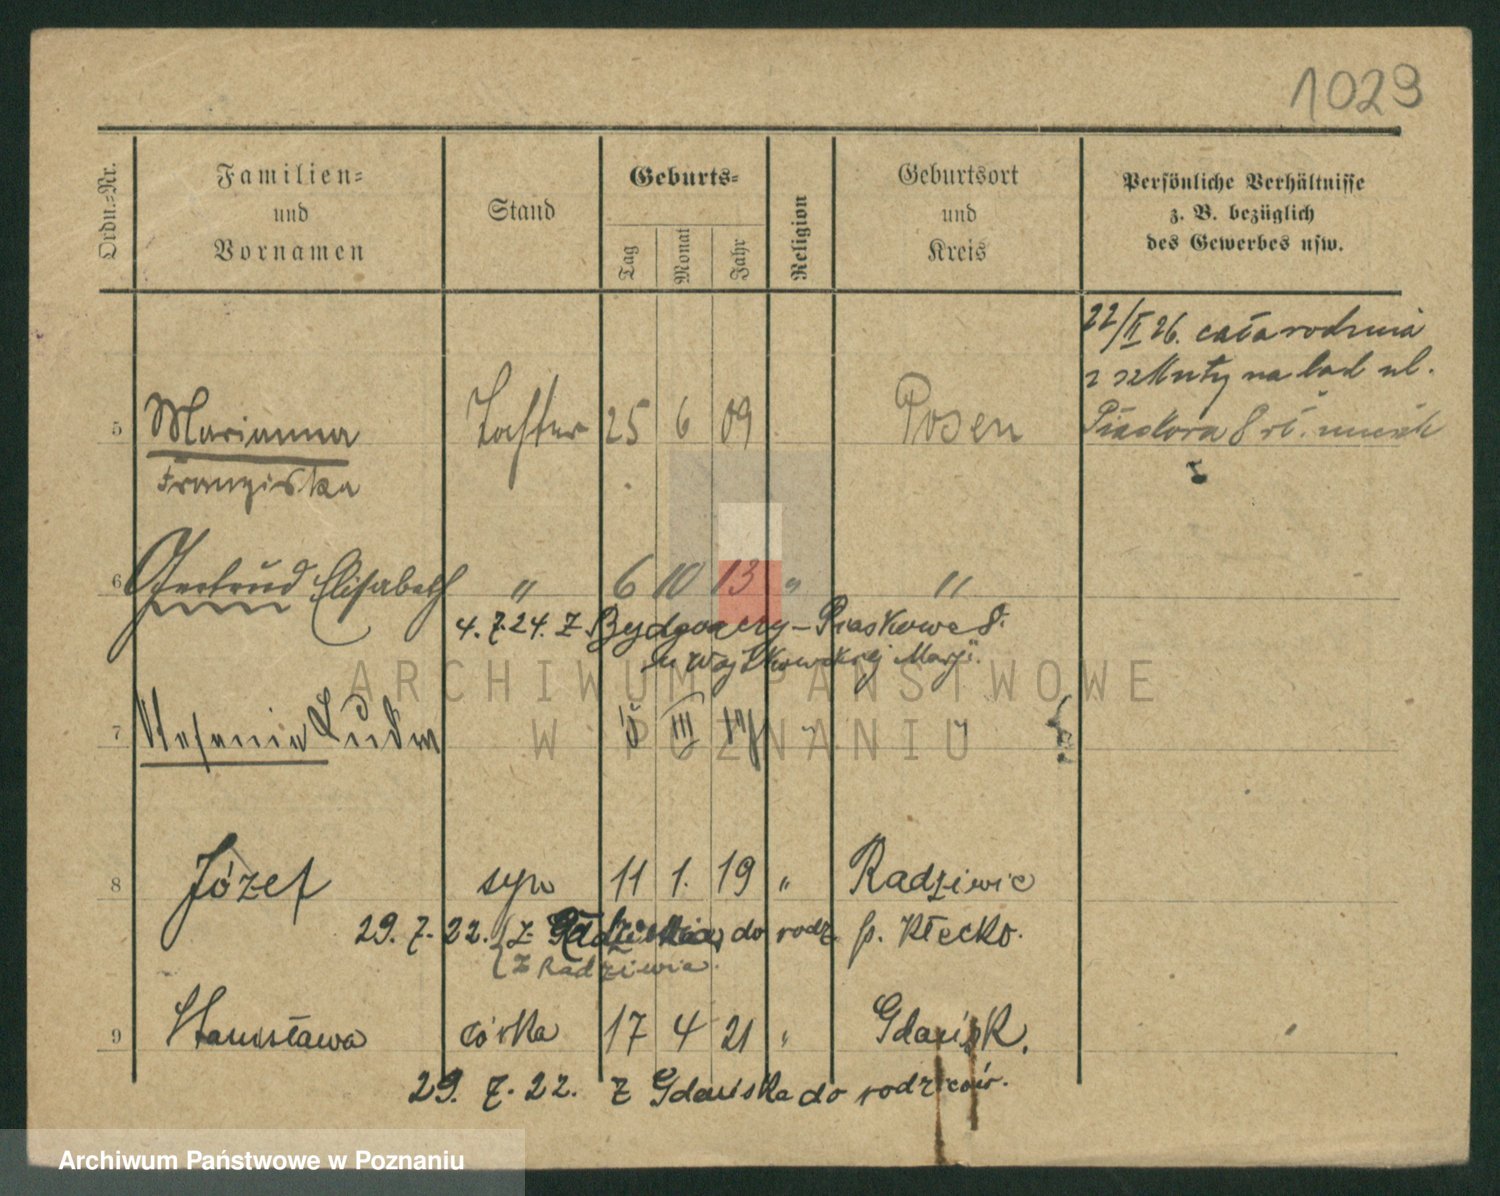 1029
Ordn.-Nr.
Familien-
und
Vornamen
Stand
Geburts-
Tag
Monat
Jahr
Religion
Geburtsort
und
Kreis
Persönliche Verhältnisse
z. B. bezüglich
des Gewerbes usw.
22/II 26. cała rodzina
z szkuty na ląd ul.
5 Marianna Tochter 25 6 09 Posen
Franziska
6 Gertrud Elisabeth " 6 10 13 " "
4. 7. 24. z Bydgoszczy - Piaskowa 8.
Marji.
7 III
8 Józef syn 11 1. 19 " Radziwie
29. 7. 22. z do rodz. p. Kłecko.
z Radziwia.
9 Stanisława córka 17 4 21 " Gdańsk.
29. 7. 22. z Gdańska do rodziców.
ARCHIWUM PAŃSTWOWE
W POZNANIU
Archiwum Państwowe w Poznaniu